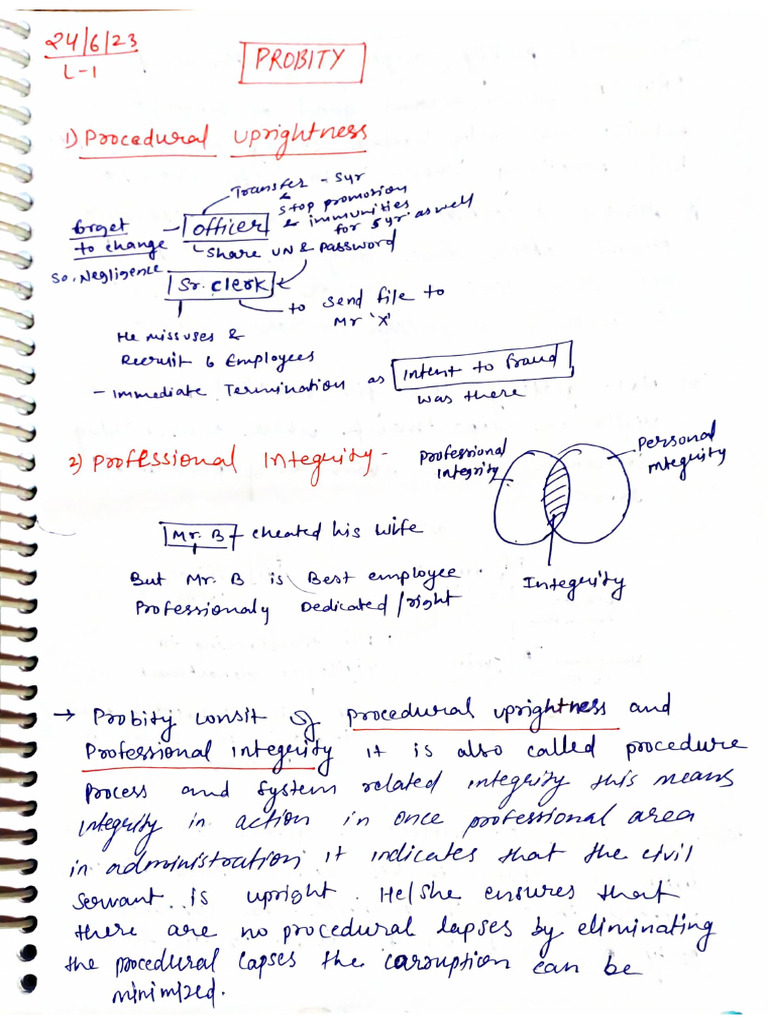 24/6/23
L-1
PROBITY
1) Procedural uprightness
Transfer - 5yr
&
Stop promotion
& immunities
for 5yr as well
officer
forget
to change
So, Negligence
Share UN & Password
Sr. clerk
to send file to
Mr 'X'
He missuses &
Recruit 6 Employees
- Immediate Termination as Intent to Fraud
was there
2) Professional Integrity -
Professional
Integrity
Personal
ntegrity
Integrity
Mr. B cheated his wife
But Mr. B is Best employee
Professionaly Dedicated/right
→ Probity consit of procedural uprightness and
Professional integrity it is also called procedure
process and system related integrity this means
integrity in action in once professional area
in administration, it indicates that the civil
servant is upright. He/she ensures that
there are no procedural lapses by eliminating
the procedural lapses the corruption can be
minimized.